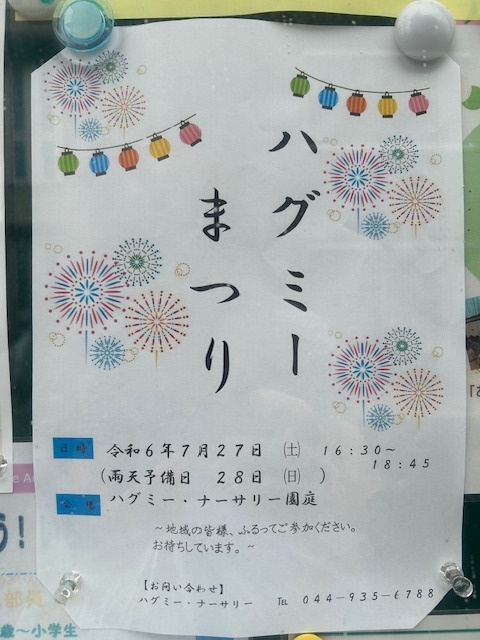 ハグミー
まつり
日時 令和6年7月27日 ㈯ 16:30～
18:45
(雨天予備日 28日 ㈰ )
会場 ハグミー・ナーサリー園庭
～地域の皆様、ふるってご参加ください。
お待ちしています。～
【お問い合わせ】
ハグミー・ナーサリー TEL 044-935-6788
う!
部員
歳～小学生